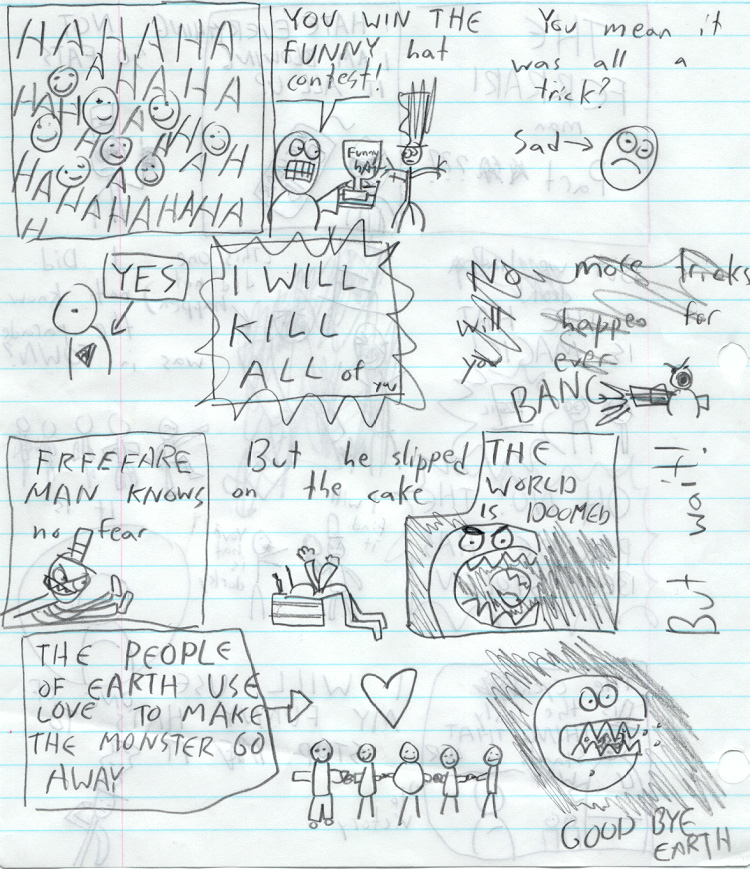 HAHAHA
A HAHA
HAH A
HAH
A A AH
HA
HAHAHAHA
H
YOU WIN THE
FUNNY hat
contest!
Funny
hAt
You mean it
was all a
trick?
Sad
YES
I WILL
KILL
ALL of you
No more tricks
will happen for
you ever
BANG
FRFEFARE
MAN KNOWS
no fear
But he slipped
on the cake
THE
WORLD
IS DOOMED
But wait!
THE PEOPLE
OF EARTH USE
LOVE TO MAKE
THE MONSTER GO
AWAY
GOOD BYE
EARTH